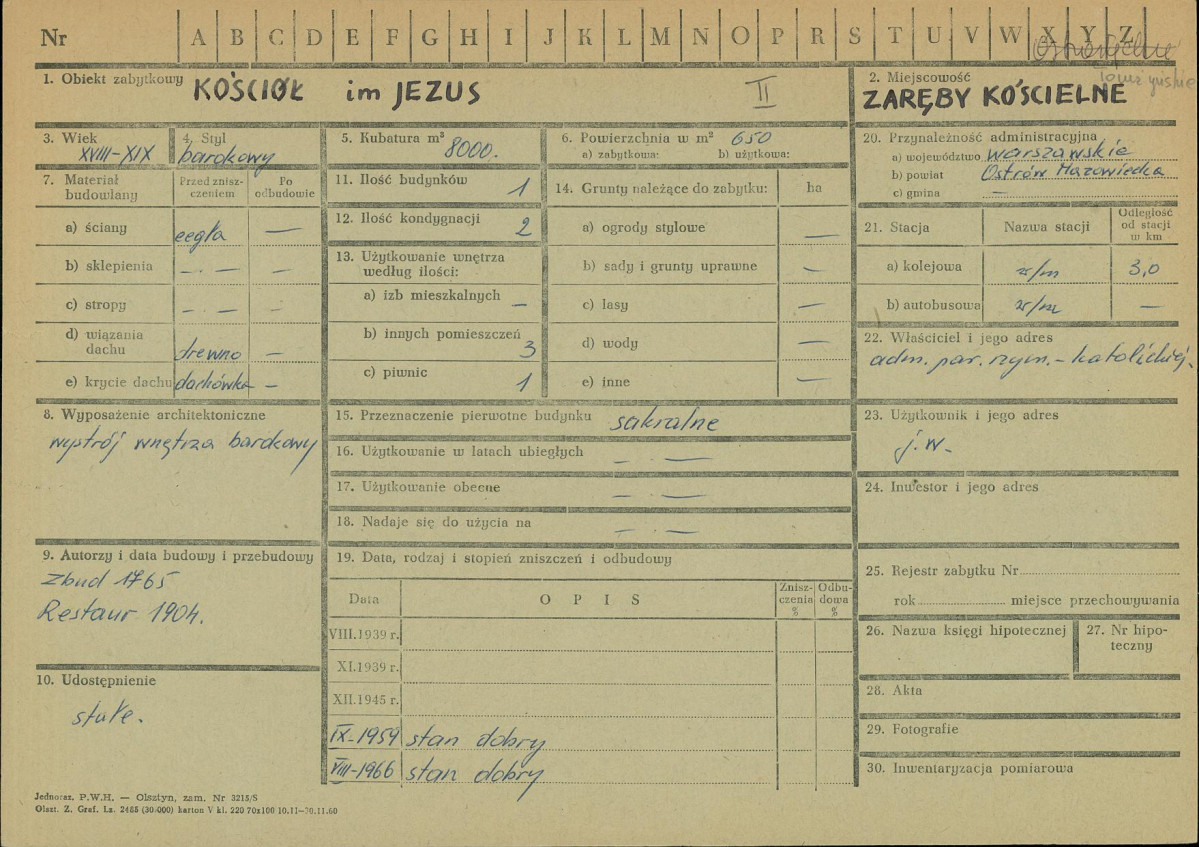 Nr A B C D E F G H I J K L M N O P R S T U V W X Y Z
1. Obiekt zabytkowy KOŚCIÓŁ im JEZUS II
2. Miejscowość
ZARĘBY KOŚCIELNE
3. Wiek
XVIII-XIX
4. Styl
barokowy
5. Kubatura m³ 8000.
6. Powierzchnia w m² 650
a) zabytkowa: b) użytkowa:
7. Materiał budowlany
Przed znisz-
czeniem
Po
odbudowie
a) ściany cegła —
b) sklepienia —. — —
c) stropy —. — —
d) wiązania
dachu drewno —
e) krycie dachu dachówka —
8. Wyposażenie architektoniczne
wystrój wnętrza barokowy
9. Autorzy i data budowy i przebudowy
Zbud 1765
Restaur 1904.
10. Udostępnienie
stałe.
11. Ilość budynków 1
12. Ilość kondygnacji 2
13. Użytkowanie wnętrza
według ilości:
a) izb mieszkalnych —
b) innych pomieszczeń 3
c) piwnic 1
14. Grunty należące do zabytku: ha
a) ogrody stylowe —
b) sady i grunty uprawne —
c) lasy —
d) wody —
e) inne —
15. Przeznaczenie pierwotne budynku sakralne
16. Użytkowanie w latach ubiegłych —. —
17. Użytkowanie obecne —. —
18. Nadaje się do użycia na —. —
19. Data, rodzaj i stopień zniszczeń i odbudowy
Data O P I S
Znisz-
czenia
%
Odbu-
dowa
%
VIII.1939 r.
XI.1939 r.
XII.1945 r.
IX-1959 stan dobry
VIII-1966 stan dobry
20. Przynależność administracyjna
a) województwo warszawskie
b) powiat Ostrów Mazowiecka
c) gmina —
21. Stacja Nazwa stacji
Odległość
od stacji
w km
a) kolejowa w/m 3,0
b) autobusowa w/m —
22. Właściciel i jego adres
adm. par. rzym.-katolickiej.
23. Użytkownik i jego adres
j.w.
24. Inwestor i jego adres
25. Rejestr zabytku Nr
rok miejsce przechowywania
26. Nazwa księgi hipotecznej
27. Nr hipo-
teczny
28. Akta
29. Fotografie
30. Inwentaryzacja pomiarowa
Jednoraz. P.W.H. — Olsztyn, zam. Nr 3215/S
Olszt. Z. Graf. Lz. 2465 (30.000) karton V kl. 220 70x100 10.11—30.11.60